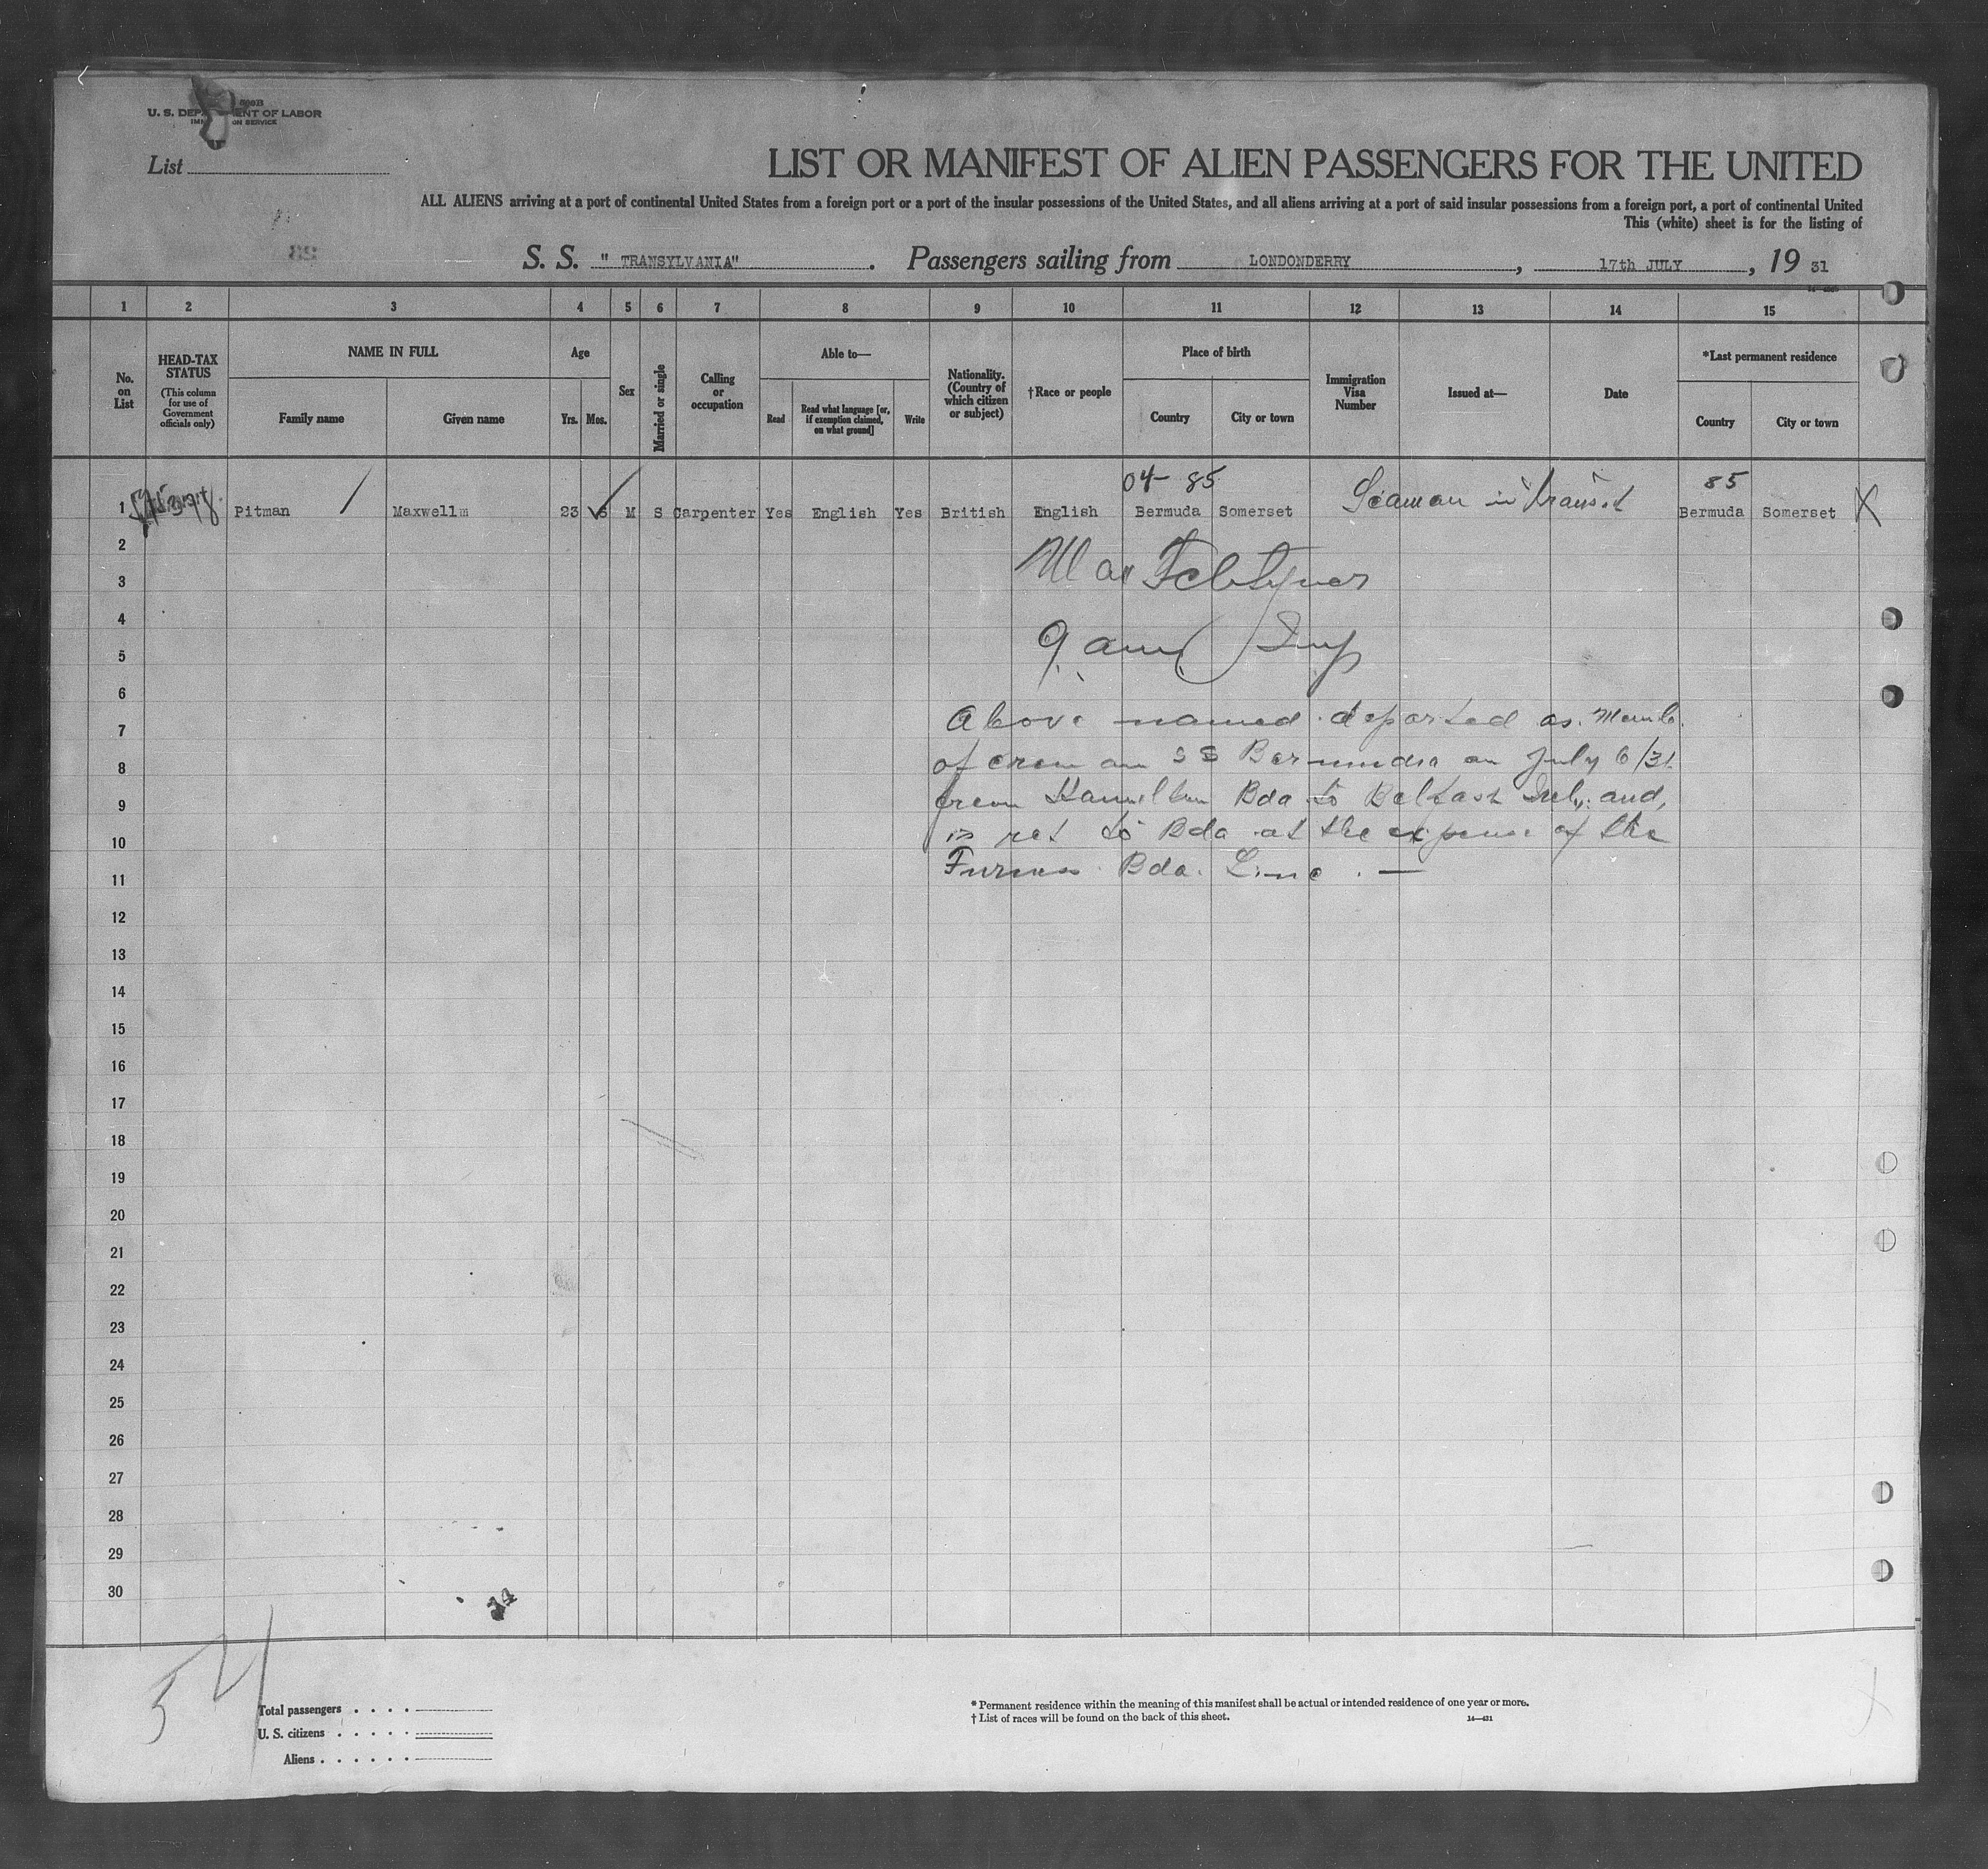 U. S. DEP ENT OF LABOR
ON SERVICE
List
LIST OR MANIFEST OF ALIEN PASSENGERS FOR THE UNITED
ALL ALIENS arriving at a port of continental United States from a foreign port or a port of the insular possessions of the United States, and all aliens arriving at a port of said insular possessions from a foreign port, a port of continental United
This (white) sheet is for the listing of
S. S. " TRANSYLVANIA" . Passengers sailing from LONDONDERRY , 17th JULY , 19 31
1 2 3 4 5 6 7 8 9 10 11 12 13 14 15
No. on List
HEAD-TAX STATUS
(This column for use of Government officials only)
NAME IN FULL
Family name
Given name
Age
Yrs. Mos.
Sex
Married or single
Calling or occupation
Able to—
Read
Read what language [or, if exemption claimed, on what ground]
Write
Nationality. (Country of which citizen or subject)
†Race or people
Place of birth
Country
City or town
Immigration Visa Number
Issued at—
Date
*Last permanent residence
Country
City or town
04- 85 85
1 Pitman Maxwell 23 M S Carpenter Yes English Yes British English Bermuda Somerset Seaman in transit Bermuda Somerset X
2
3
4
5
6
7 Above named departed as Memb.
8 of crew on SS Bermuda on July 6/31
9 from Hamilton Bda to Belfast Irel. and,
10 is ret to Bda at the expense of the
11 Furness Bda. Line. —
12
13
14
15
16
17
18
19
20
21
22
23
24
25
26
27
28
29
30
24
Total passengers . . . .
U. S. citizens . . . . .
Aliens . . . . . .
* Permanent residence within the meaning of this manifest shall be actual or intended residence of one year or more.
† List of races will be found on the back of this sheet. 14—431